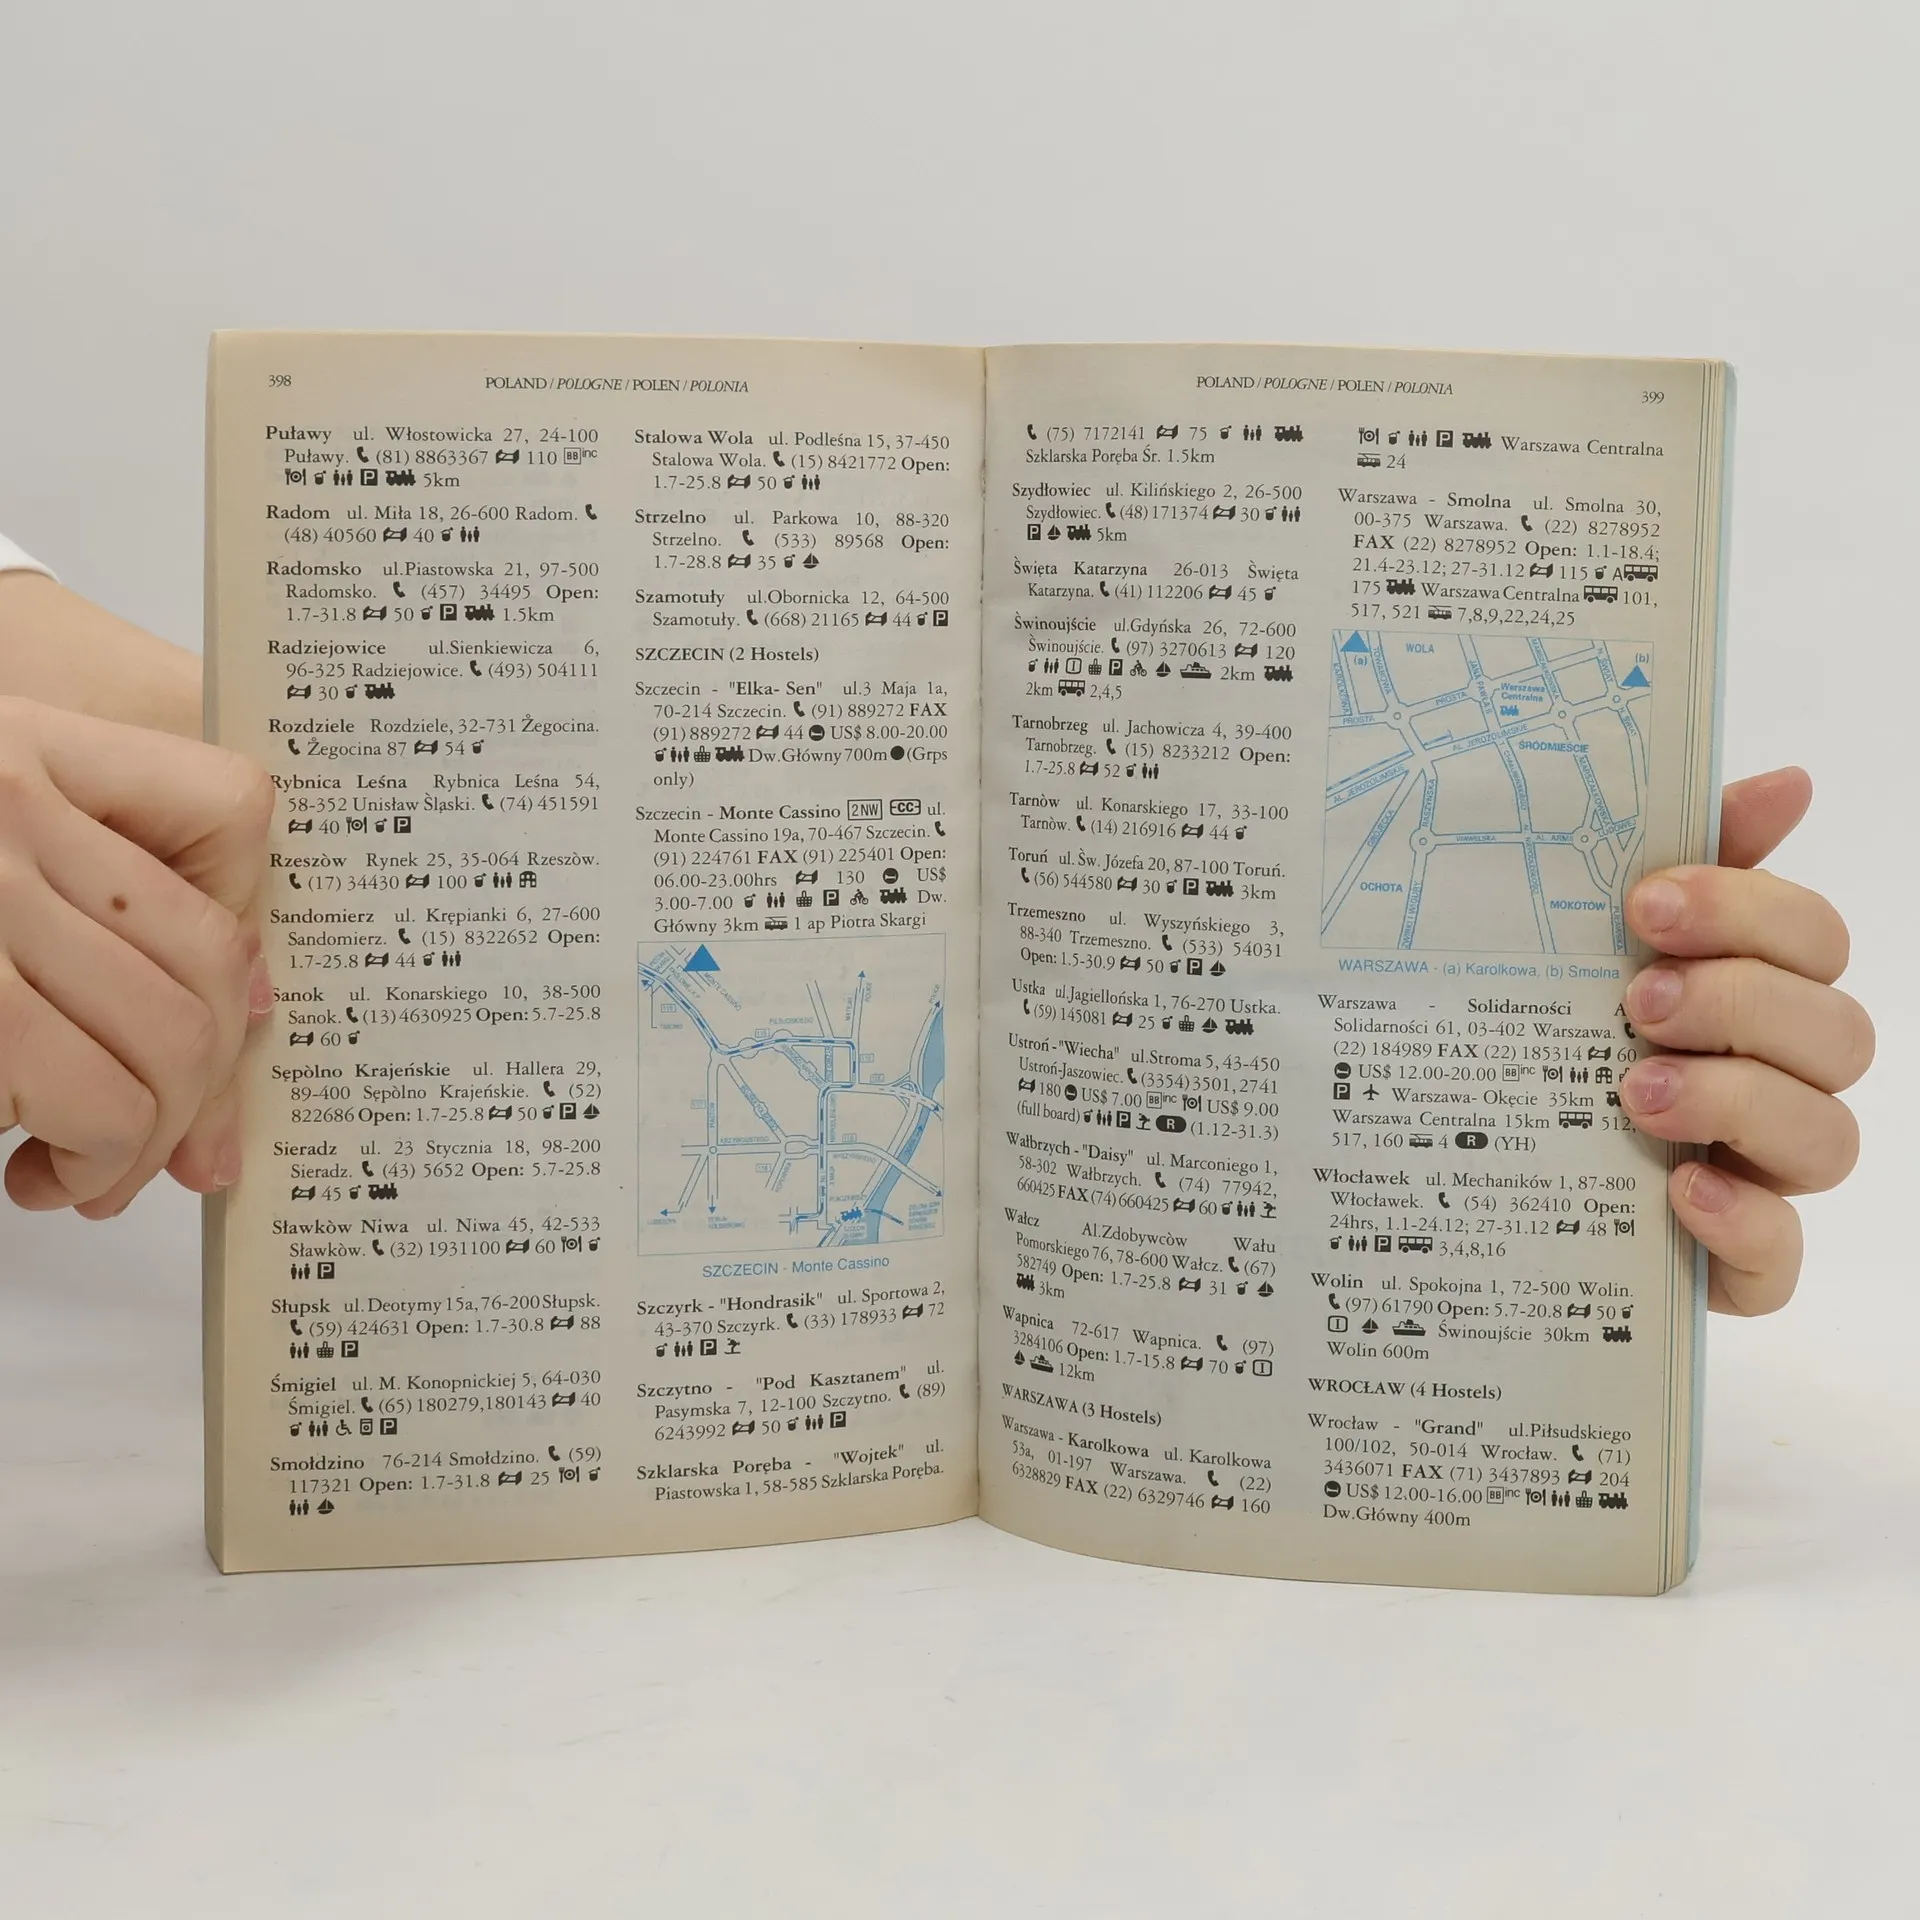 398
POLAND / POLOGNE / POLEN / POLONIA
Puławy ul. Włostowicka 27, 24-100
Puławy. (81) 8863367 110 BB inc
P 5km
Radom ul. Miła 18, 26-600 Radom.
(48) 40560 40
Radomsko ul.Piastowska 21, 97-500
Radomsko. (457) 34495 Open:
1.7-31.8 50 P 1.5km
Radziejowice ul.Sienkiewicza 6,
96-325 Radziejowice. (493) 504111
30
Rozdziele Rozdziele, 32-731 Żegocina.
Żegocina 87 54
Rybnica Leśna Rybnica Leśna 54,
58-352 Unisław Ślaski. (74) 451591
40 P
Rzeszòw Rynek 25, 35-064 Rzeszòw.
(17) 34430 100
Sandomierz ul. Krępianki 6, 27-600
Sandomierz. (15) 8322652 Open:
1.7-25.8 44
Sanok ul. Konarskiego 10, 38-500
Sanok. (13) 4630925 Open: 5.7-25.8
60
Sępòlno Krajeńskie ul. Hallera 29,
89-400 Sępòlno Krajeńskie. (52)
822686 Open: 1.7-25.8 50 P
Sieradz ul. 23 Stycznia 18, 98-200
Sieradz. (43) 5652 Open: 5.7-25.8
45
Sławkòw Niwa ul. Niwa 45, 42-533
Sławkòw. (32) 1931100 60
P
Słupsk ul. Deotymy 15a, 76-200 Słupsk.
(59) 424631 Open: 1.7-30.8 88
P
Śmigiel ul. M. Konopnickiej 5, 64-030
Śmigiel. (65) 180279,180143 40
P
Smołdzino 76-214 Smołdzino. (59)
117321 Open: 1.7-31.8 25
Stalowa Wola ul. Podleśna 15, 37-450
Stalowa Wola. (15) 8421772 Open:
1.7-25.8 50
Strzelno ul. Parkowa 10, 88-320
Strzelno. (533) 89568 Open:
1.7-28.8 35
Szamotuły ul.Obornicka 12, 64-500
Szamotuły. (668) 21165 44 P
SZCZECIN (2 Hostels)
Szczecin - "Elka- Sen" ul.3 Maja 1a,
70-214 Szczecin. (91) 889272 FAX
(91) 889272 44 US$ 8.00-20.00
Dw.Główny 700m (Grps
only)
Szczecin - Monte Cassino 2NW CC ul.
Monte Cassino 19a, 70-467 Szczecin.
(91) 224761 FAX (91) 225401 Open:
06.00-23.00hrs 130 US$
3.00-7.00 P Dw.
Główny 3km 1 ap Piotra Skargi
MONTE CASSINO
SZCZECIN - Monte Cassino
Szczyrk - "Hondrasik" ul. Sportowa 2,
43-370 Szczyrk. (33) 178933 72
P
Szczytno - "Pod Kasztanem" ul.
Pasymska 7, 12-100 Szczytno. (89)
6243992 50 P
Szklarska Poręba - "Wojtek" ul.
Piastowska 1, 58-585 Szklarska Poręba.
POLAND / POLOGNE / POLEN / POLONIA
399
(75) 7172141 75
Szklarska Poręba Śr. 1.5km
Szydłowiec ul. Kilińskiego 2, 26-500
Szydłowiec. (48) 171374 30
P 5km
Święta Katarzyna 26-013 Święta
Katarzyna. (41) 112206 45
Świnoujście ul.Gdyńska 26, 72-600
Świnoujście. (97) 3270613 120
I P 2km
2km 2,4,5
Tarnobrzeg ul. Jachowicza 4, 39-400
Tarnobrzeg. (15) 8233212 Open:
1.7-25.8 52
Tarnòw ul. Konarskiego 17, 33-100
Tarnòw. (14) 216916 44
Toruń ul. Św. Józefa 20, 87-100 Toruń.
(56) 544580 30 P 3km
Trzemeszno ul. Wyszyńskiego 3,
88-340 Trzemeszno. (533) 54031
Open: 1.5-30.9 50 P
Ustka ul.Jagiellońska 1, 76-270 Ustka.
(59) 145081 25
Ustroń -"Wiecha" ul.Stroma 5, 43-450
Ustroń-Jaszowiec. (3354) 3501, 2741
180 US$ 7.00 BB inc US$ 9.00
(full board) P R (1.12-31.3)
Wałbrzych - "Daisy" ul. Marconiego 1,
58-302 Wałbrzych. (74) 77942,
660425 FAX (74) 660425 60
Wałcz Al.Zdobywcòw Wału
Pomorskiego 76, 78-600 Wałcz. (67)
582749 Open: 1.7-25.8 31
3km
Wapnica 72-617 Wapnica. (97)
3284106 Open: 1.7-15.8 70 I
12km
WARSZAWA (3 Hostels)
Warszawa - Karolkowa ul. Karolkowa
53a, 01-197 Warszawa. (22)
6328829 FAX (22) 6329746 160
P Warszawa Centralna
24
Warszawa - Smolna ul. Smolna 30,
00-375 Warszawa. (22) 8278952
FAX (22) 8278952 Open: 1.1-18.4;
21.4-23.12; 27-31.12 115 A
175 Warszawa Centralna 101,
517, 521 7,8,9,22,24,25
(a) WOLA (b)
TOWAROWA
JANA PAWŁA II
Warszawa
Centralna
PROSTA PROSTA
AL. JEROZOLIMSKIE ŚRÓDMIEŚCIE
AL. JEROZOLIMSKIE
MARSZAŁKOWSKA
GRÓJECKA
WAWELSKA
OCHOTA
MOKOTÓW
WARSZAWA - (a) Karolkowa, (b) Smolna
Warszawa - Solidarności
Solidarności 61, 03-402 Warszawa.
(22) 184989 FAX (22) 185314 60
US$ 12.00-20.00 BB inc
P Warszawa- Okęcie 35km
Warszawa Centralna 15km 512,
517, 160 4 R (YH)
Włocławek ul. Mechaników 1, 87-800
Włocławek. (54) 362410 Open:
24hrs, 1.1-24.12; 27-31.12 48
P 3,4,8,16
Wolin ul. Spokojna 1, 72-500 Wolin.
(97) 61790 Open: 5.7-20.8 50
I Świnoujście 30km
Wolin 600m
WROCŁAW (4 Hostels)
Wrocław - "Grand" ul.Piłsudskiego
100/102, 50-014 Wrocław. (71)
3436071 FAX (71) 3437893 204
US$ 12.00-16.00 BB inc
Dw.Główny 400m